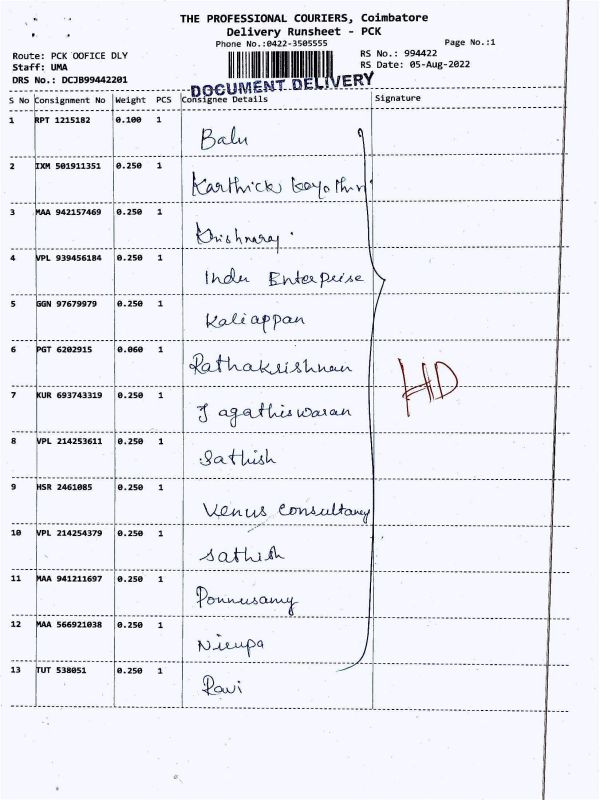 THE PROFESSIONAL COURIERS, Coimbatore
Delivery Runsheet - PCK
Phone No.:0422-3505555
Page No.:1
Route: PCK OOFICE DLY
RS No.: 994422
Staff: UMA
RS Date: 05-Aug-2022
DRS No.: DCJB99442201
DOCUMENT DELIVERY
S No Consignment No Weight PCS Consignee Details Signature
1 RPT 1215182 0.100 1 Balu
2 IXM 501911351 0.250 1 Karthick
3 MAA 942157469 0.250 1 Krishnaraj
4 VPL 939456184 0.250 1 Indu Enterprise
5 GGN 97679979 0.250 1 Kaliappan
6 PGT 6202915 0.060 1 Rathakrishnan
7 KUR 693743319 0.250 1 Jagathiswaran
HD
8 VPL 214253611 0.250 1 Sathish
9 HSR 2461085 0.250 1 Venus Consultancy
10 VPL 214254379 0.250 1 Sathish
11 MAA 941211697 0.250 1 Ponnusamy
12 MAA 566921038 0.250 1 Nirupa
13 TUT 538051 0.250 1 Ravi